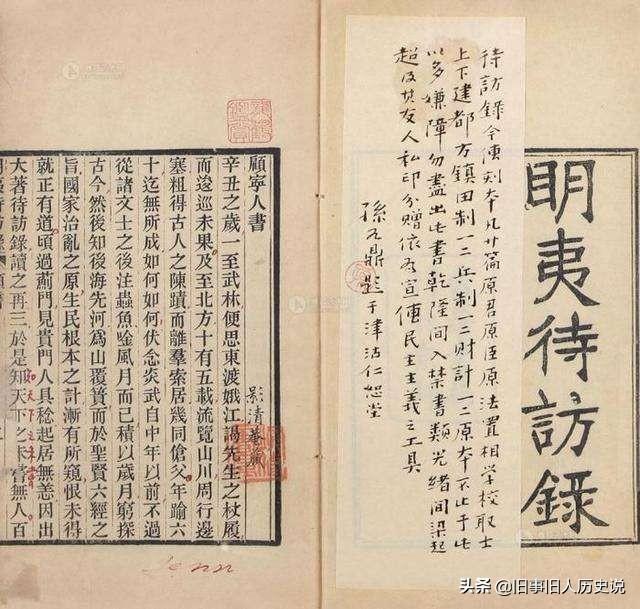 明夷待訪錄
待訪錄今傳刻本凡廿篇原君原臣原法置相學校取士
上下建都方鎮田制一二三兵制一二三財計一二三原本不止于此
以多嫌障勿盡出此書乾隆間入禁書類光緒間梁起
超及其友人私印分贈依為宣傳民主主義之工具
孫鼎題于津沽仁恕堂
顧寧人書
辛丑之歲一至武林便思東渡娥江謁先生之杖履
而逡巡未果及至北方十有五載流覽山川周行邊
塞粗得古人之陳蹟而離羣索居幾同傖父年踰六
十迄無所成如何如何伏念炎武自中年以前不過
從諸文士之後注蟲魚唫風月而已積以歲月窮探
古今然後知後海先河爲山覆簣而於聖賢六經之
旨國家治亂之原生民根本之計漸有所窺恨未得
就正有道頃過薊門見貴門人具稔起居無恙因出
大著待訪錄讀之再三於是知天下之未嘗無人百
影清菴藏
头条 @旧事旧人历史说